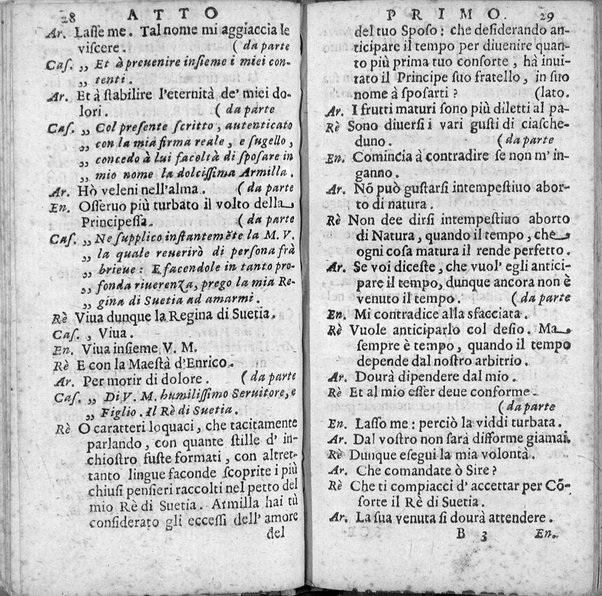 28 ATTO
Ar. Lasse me. Tal nome mi aggiaccia le
viscere. (da parte
Cas. ,, Et à preuenire insieme i miei con-
,, tenti.
Ar. Et à stabilire l'eternità de' miei do-
lori. (da parte
Cas. ,, Col presente scritto, autenticato
,, con la mia firma reale, e sugello,
,, concedo à lui facoltà di sposare in
,, mio nome la dolcissima Armilla.
Ar. Hò veleni nell'alma. (da parte
En. Osseruo più turbato il volto della
Principessa. (da parte
Cas. ,, Ne supplico instantemēte la M. V.
,, la quale reuerirò di persona frà
,, brieue: E facendole in tanto pro-
,, fonda riuerenza, prego la mia Re-
,, gina di Suetia ad amarmi.
Rè Viua dunque la Regina di Suetia.
Cas. , Viua.
En. Viua insieme V. M.
Rè E con la Maestà d'Enrico.
Ar. Per morir di dolore. (da parte
Cas. ,, Di V. M. humilissimo Seruitore, e
,, Figlio. Il Rè di Suetia.
Rè O caratteri loquaci, che tacitamente
parlando, con quante stille d' in-
chiostro fuste formati, con altret-
tanto lingue faconde scoprite i più
chiusi pensieri raccolti nel petto del
mio Rè di Suetia. Armilla hai tù
considerato gli eccessi dell'amore
del
PRIMO. 29
del tuo Sposo: che desiderando an-
ticipare il tempo per diuenire quan-
to più prima tuo consorte, hà inui-
tato il Principe suo fratello, in suo
nome à sposarti? (lato.
Ar. I frutti maturi sono più diletti al pa-
Rè Sono diuersi i vari gusti di ciasche-
duno. (da parte
En. Comincia à contradire se non m' in-
ganno.
Ar. Nō può gustarsi intempestiuo abor-
to di natura.
Rè Non dee dirsi intempestiuo aborto
di Natura, quando il tempo, che
ogni cosa matura il rende perfetto.
Ar. Se voi diceste, che vuol' egli antici-
pare il tempo, dunque ancora non è
venuto il tempo. (da parte
En. Mi contradice alla sfacciata.
Rè Vuole anticiparlo col desio. Ma
sempre è tempo, quando il tempo
depende dal nostro arbitrio.
Ar. Dourà dipendere dal mio.
Rè Et al mio esser deue conforme.
(da parte
En. Lasso me: perciò la viddi turbata.
Ar. Dal vostro non sarà difforme giamai.
Rè Dunque esegui la mia volontà.
Ar. Che comandate ò Sire?
Rè Che ti compiacci d' accettar per Cō-
sorte il Rè di Suetia.
Ar. La sua venuta si dourà attendere.
B 3 En.